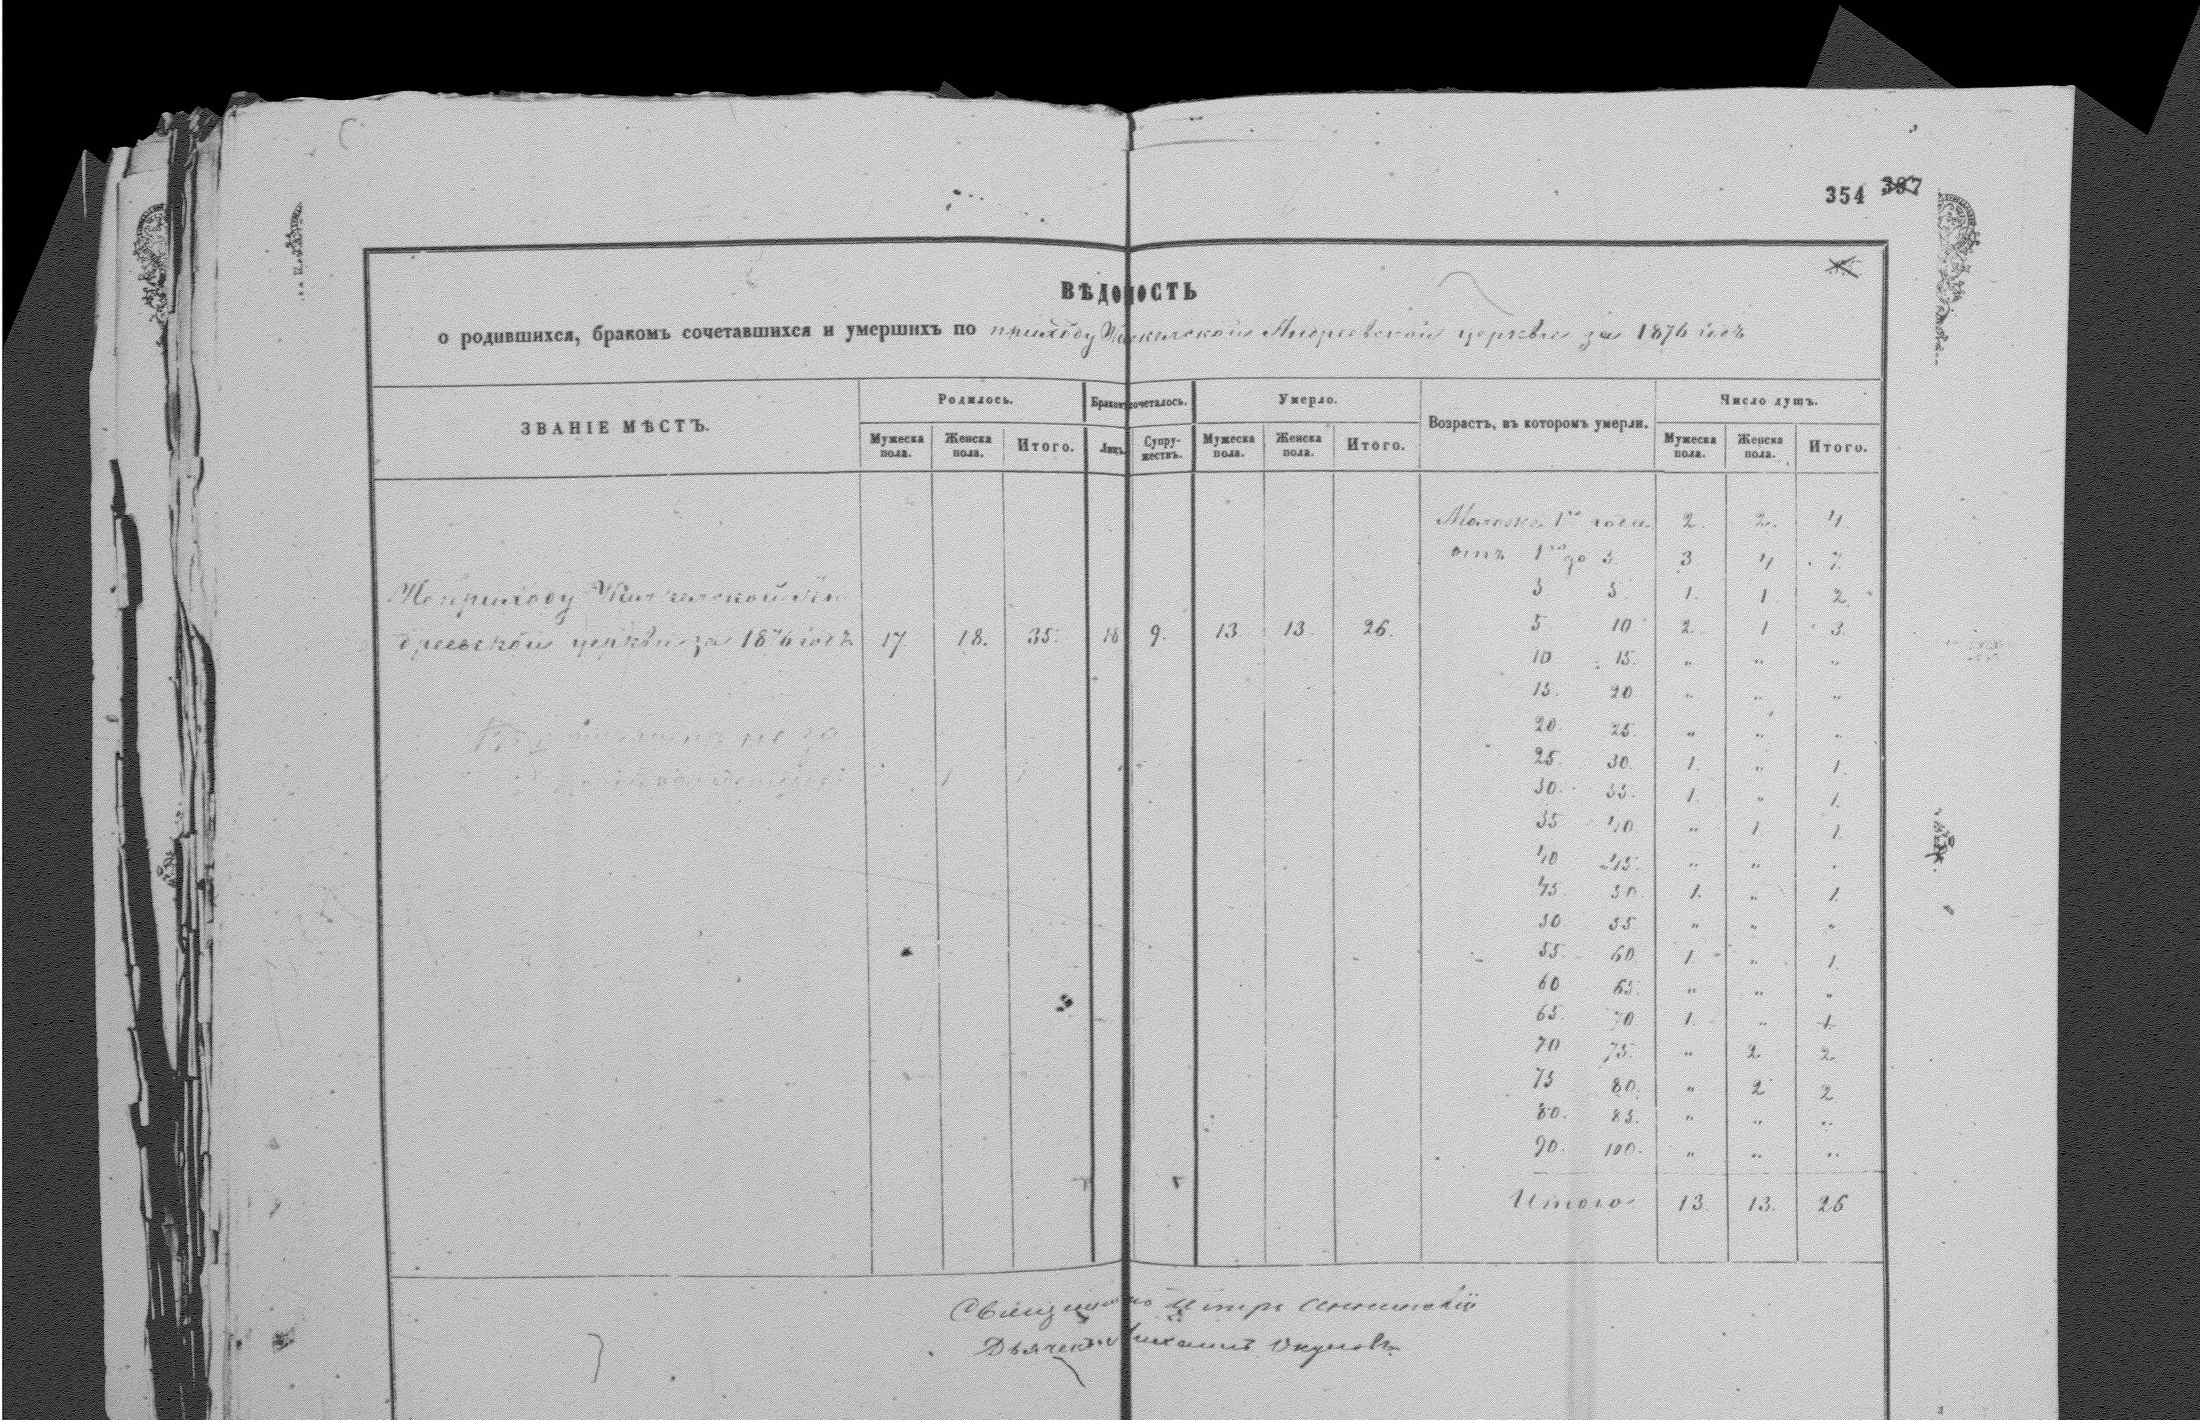 354 397
ВѢДОМОСТЬ
о родившихся, бракомъ сочетавшихся и умершихъ по приходу Андреевской церкви за 1876 годъ
ЗВАНІЕ МѢСТЪ.
Родилось.
Бракомъ сочеталось.
Умерло.
Возрастъ, въ которомъ умерли.
Число душъ.
Мужеска пола.
Женска пола.
Итого.
Лицъ.
Супружествъ.
Мужеска пола.
Женска пола.
Итого.
Мужеска пола.
Женска пола.
Итого.
1го года 2. 2. 4.
отъ 1го до 3. 3 4 7.
3 5. 1. 1 2.
5 10 2. 1 3.
10 15. „ „ „
15. 20 „ „ „
20. 25. „ „ „
25. 30. 1. „ 1.
30. 35. 1. „ 1.
35 40 „ 1 1.
40 45. „ „ „
45. 50. 1. „ 1.
50 55. „ „ „
55. 60 1. „ 1.
60 65. „ „ „
65. 70. 1. „ 1.
70 75. „ 2 2.
75 80. „ 2 2
80. 85. „ „ „
90. 100. „ „ „
Итого 13. 13. 26
По приходу Ан
дреевской церкви за 1876 годъ 17 18. 35. 18 9. 13 13. 26.
Священникъ Петръ
Дьячекъ Михаилъ Окуловъ